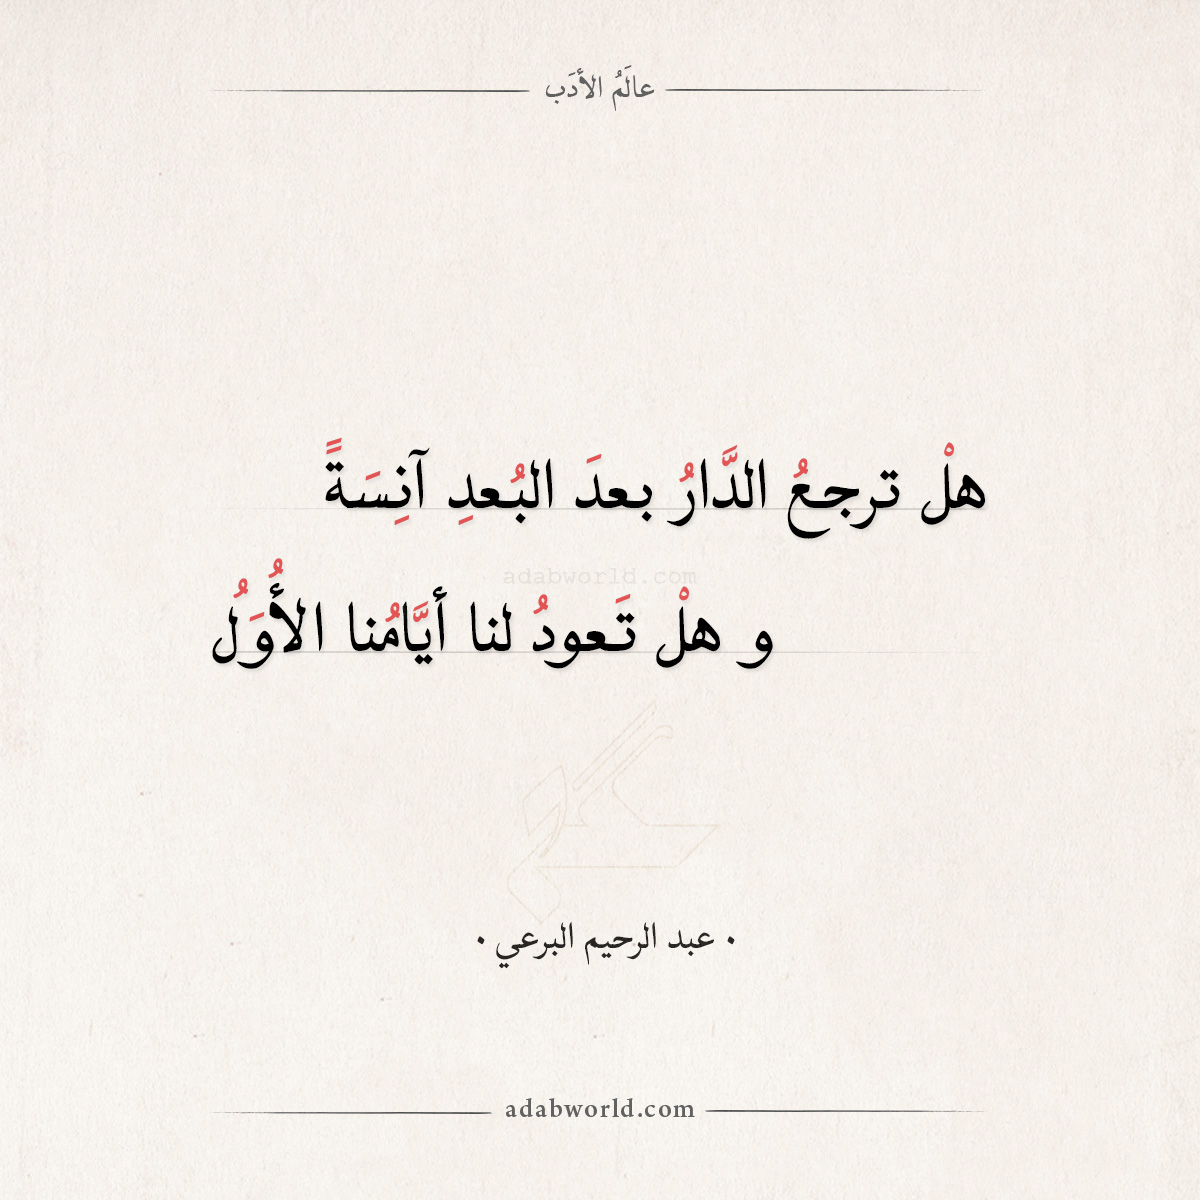 عالَمُ الأدَب
هلْ ترجعُ الدَّارُ بعدَ البُعدِ آنِسَةً
adabworld.com
و هلْ تَعودُ لنا أيَّامُنا الأُوَلُ
• عبد الرحيم البرعي •
adabworld.com